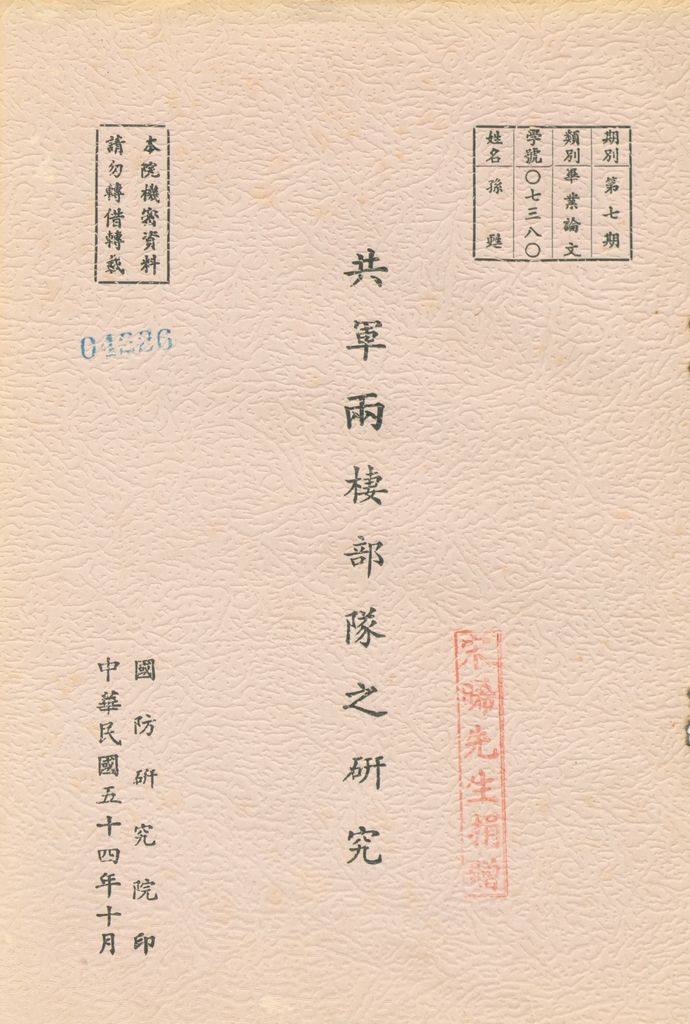 期別 第七期
類別 畢業論文
學號 〇七三八〇
姓名 孫甦
共軍兩棲部隊之研究
宋晞先生捐贈
本院機密資料
請勿轉借轉載
國防研究院印
中華民國五十四年十月